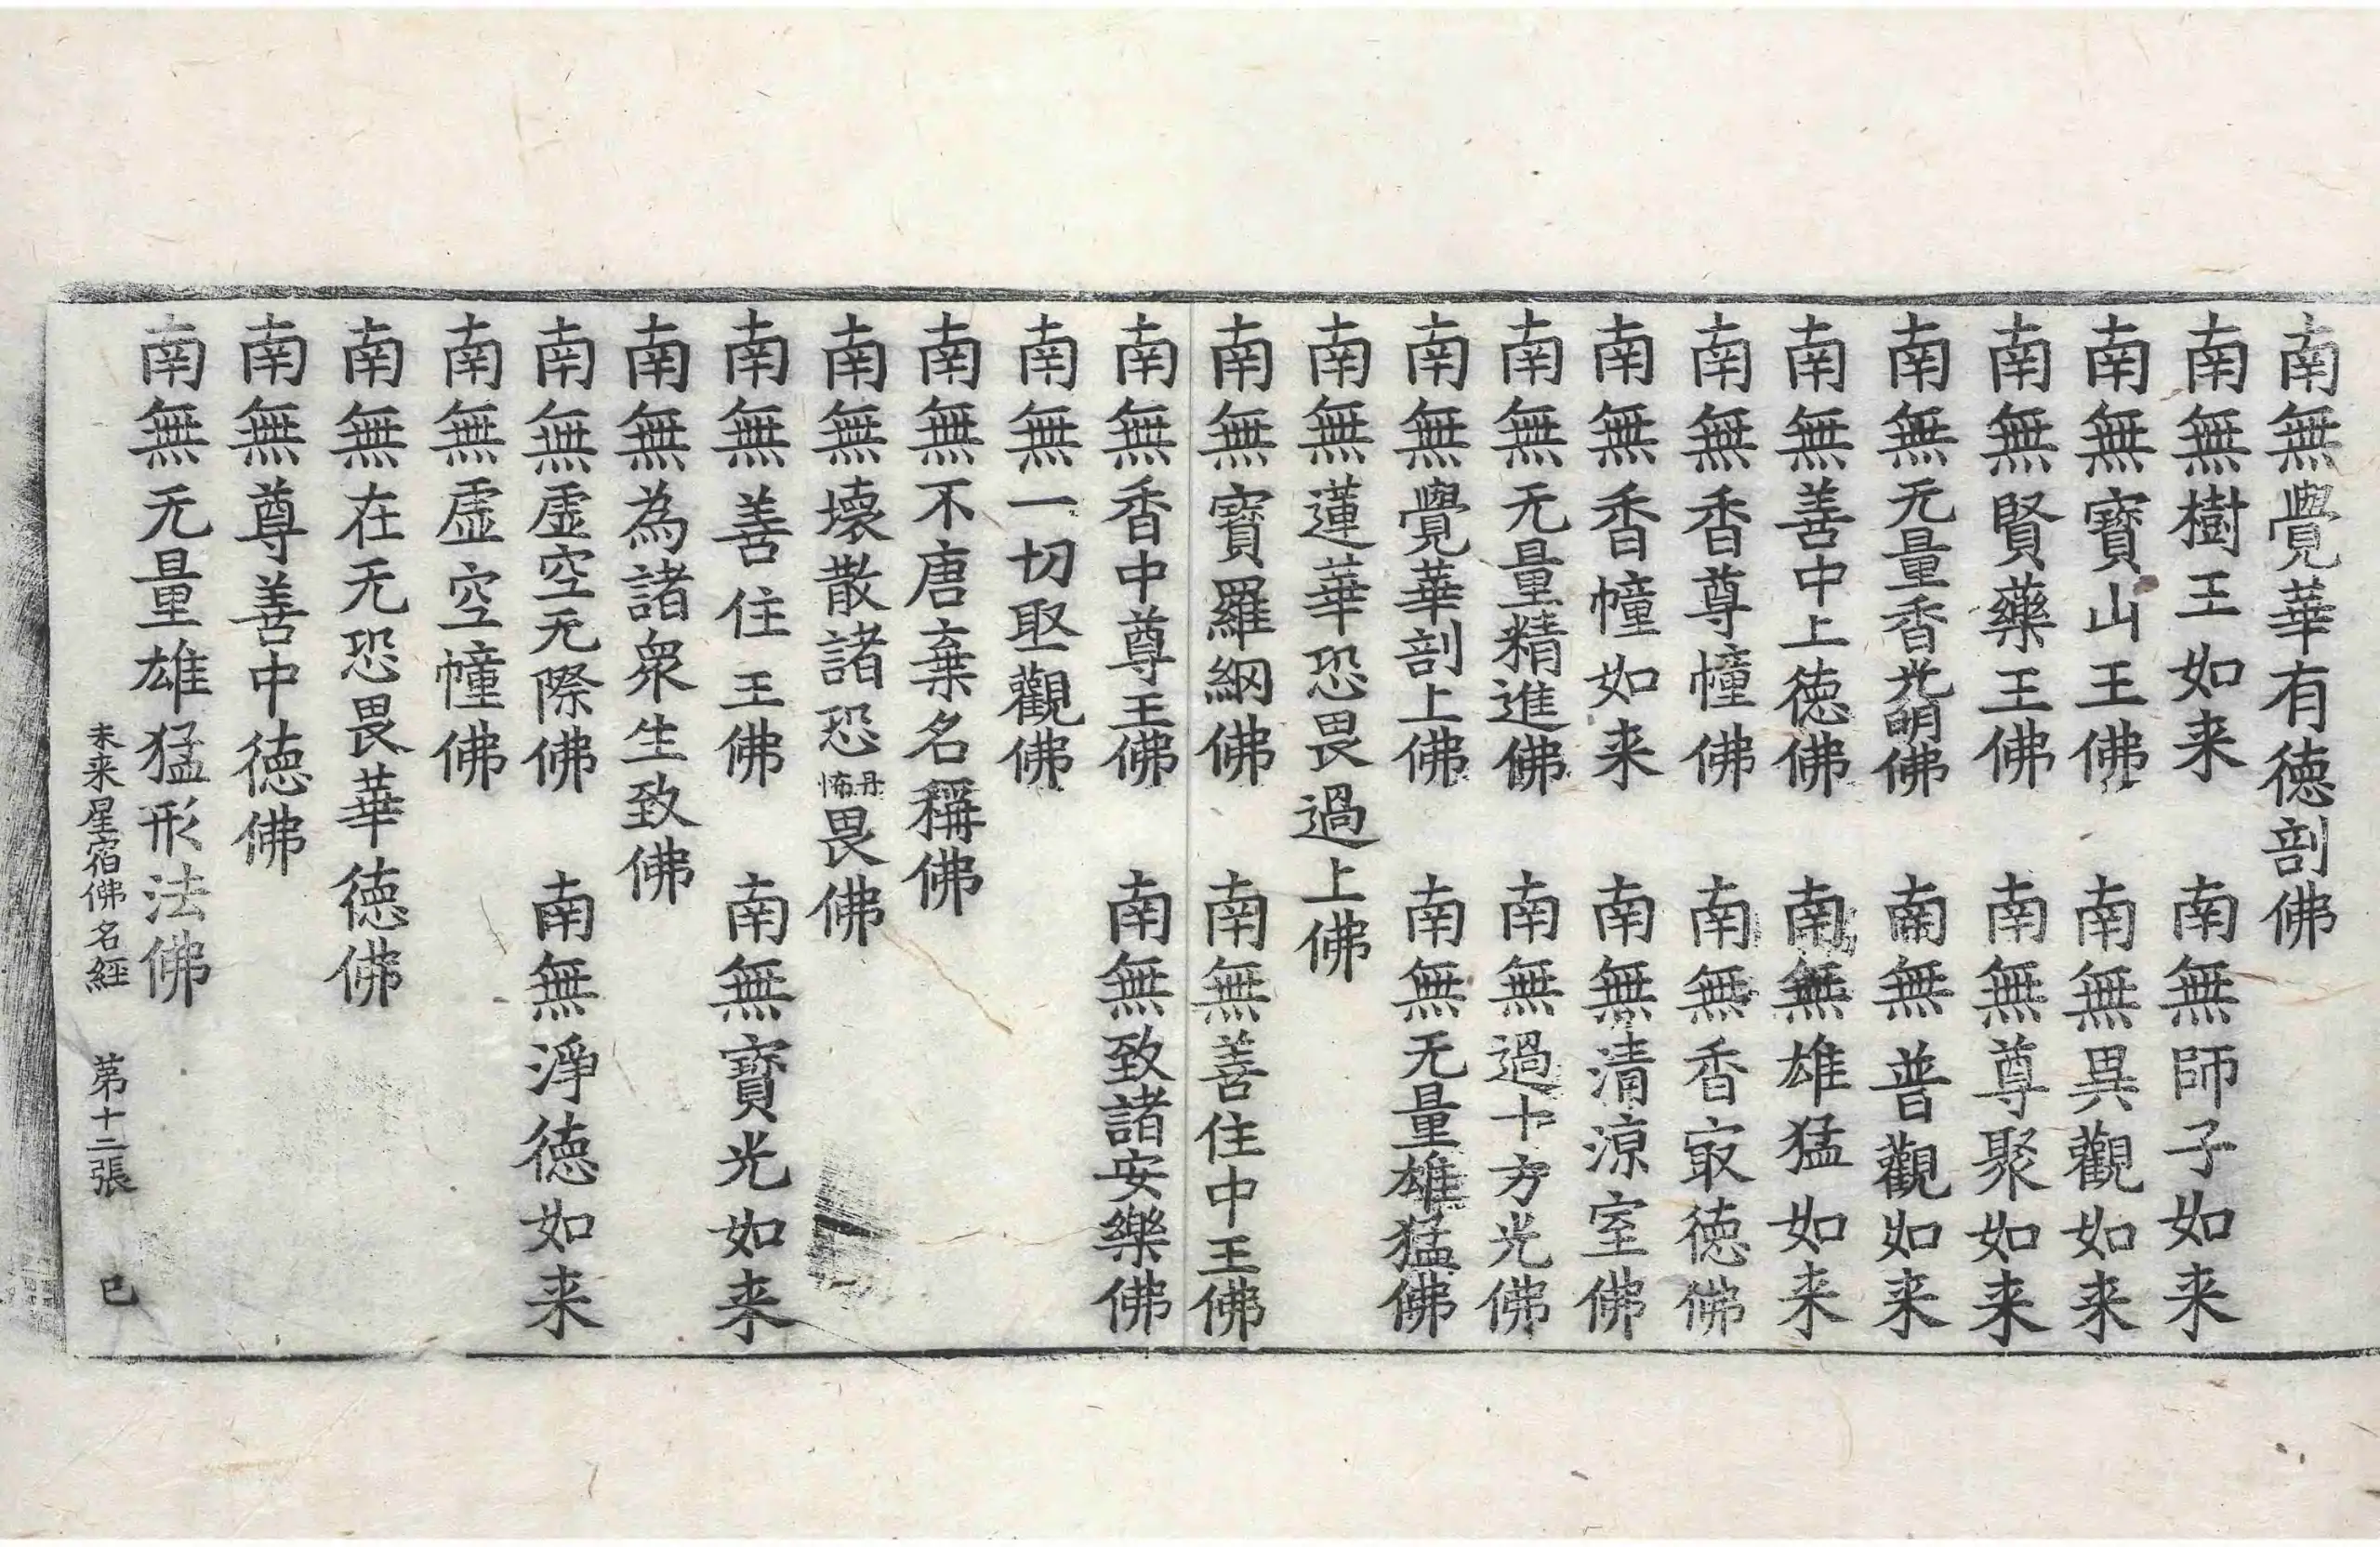 南無覺華有徳剖佛
南無樹王如来　南無師子如来
南無寶山王佛　南無異觀如来
南無賢藥王佛　南無尊聚如来
南無无量香光明佛　南無普觀如来
南無善中上徳佛　南無雄猛如来
南無香尊幢佛　南無香㝡徳佛
南無香幢如来　南無清涼室佛
南無无量精進佛　南無過十方光佛
南無覺華剖上佛　南無无量雄猛佛
南無蓮華恐畏過上佛
南無寶羅網佛　南無善住中王佛
南無香中尊王佛　南無致諸安樂佛
南無一切堅觀佛
南無不唐棄名稱佛
南無壞散諸恐丹怖畏佛
南無善住王佛　南無寶光如来
南無為諸衆生致佛
南無虛空无際佛　南無淨徳如来
南無虛空幢佛
南無在无恐畏華徳佛
南無尊善中徳佛
南無无量雄猛形法佛
未来星宿佛名經　第十二張　巳